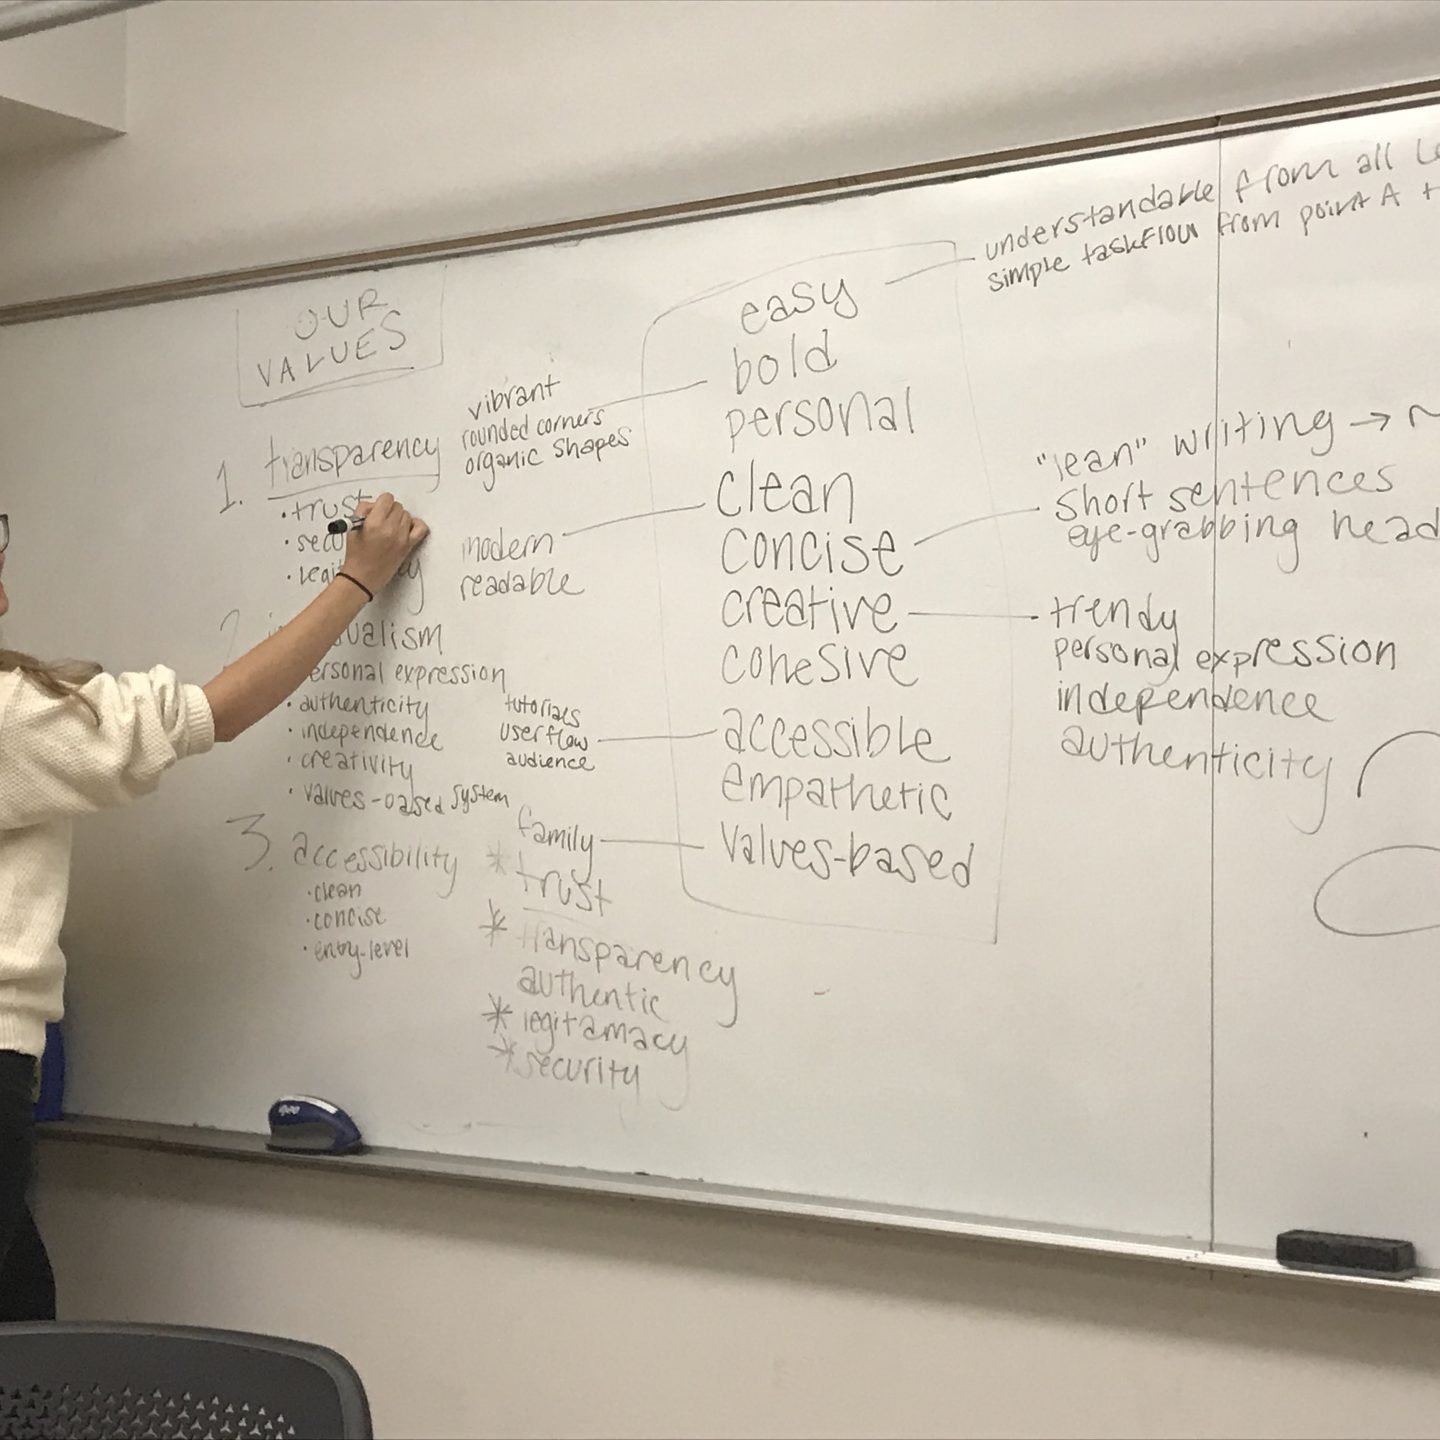 OUR
VALUES
1. transparency
• trust
•
•
2.
personal expression
• authenticity
• independence
• creativity
• values-based system
3. accessibility
• clean
• concise
• entry-level
vibrant
rounded corners
organic shapes
modern
readable
tutorials
user flow
audience
family
* trust
* transparency
authentic
* legitamacy
* security
easy
bold
personal
clean
concise
creative
cohesive
accessible
empathetic
values-based
understandable from all
simple taskflow from point A
"lean" writing →
short sentences
eye-grabbing
trendy
personal expression
independence
authenticity
expo